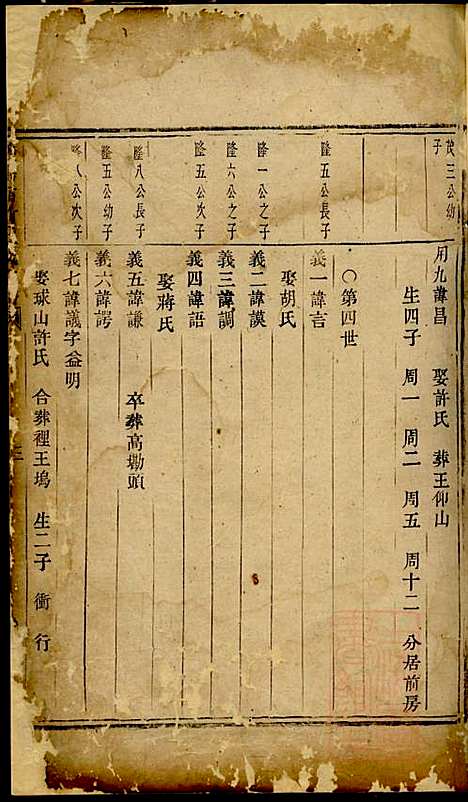 茂三公幼子
用九諱昌　娶許氏　葬王仰山
生四子　周一　周二　周五　周十二　分居前房
〇第四世
隆五公長子
義一諱言
娶胡氏
隆一公之子
義二諱謨
隆六公之子
義三諱調
隆五公次子
義四諱語
隆八公長子
義五諱謙　卒葬高塘頭
娶蔣氏
隆五公幼子
義六諱諤
隆八公次子
義七諱議字益明
娶球山許氏　合葬裡王塢　生二子　衝　行
三